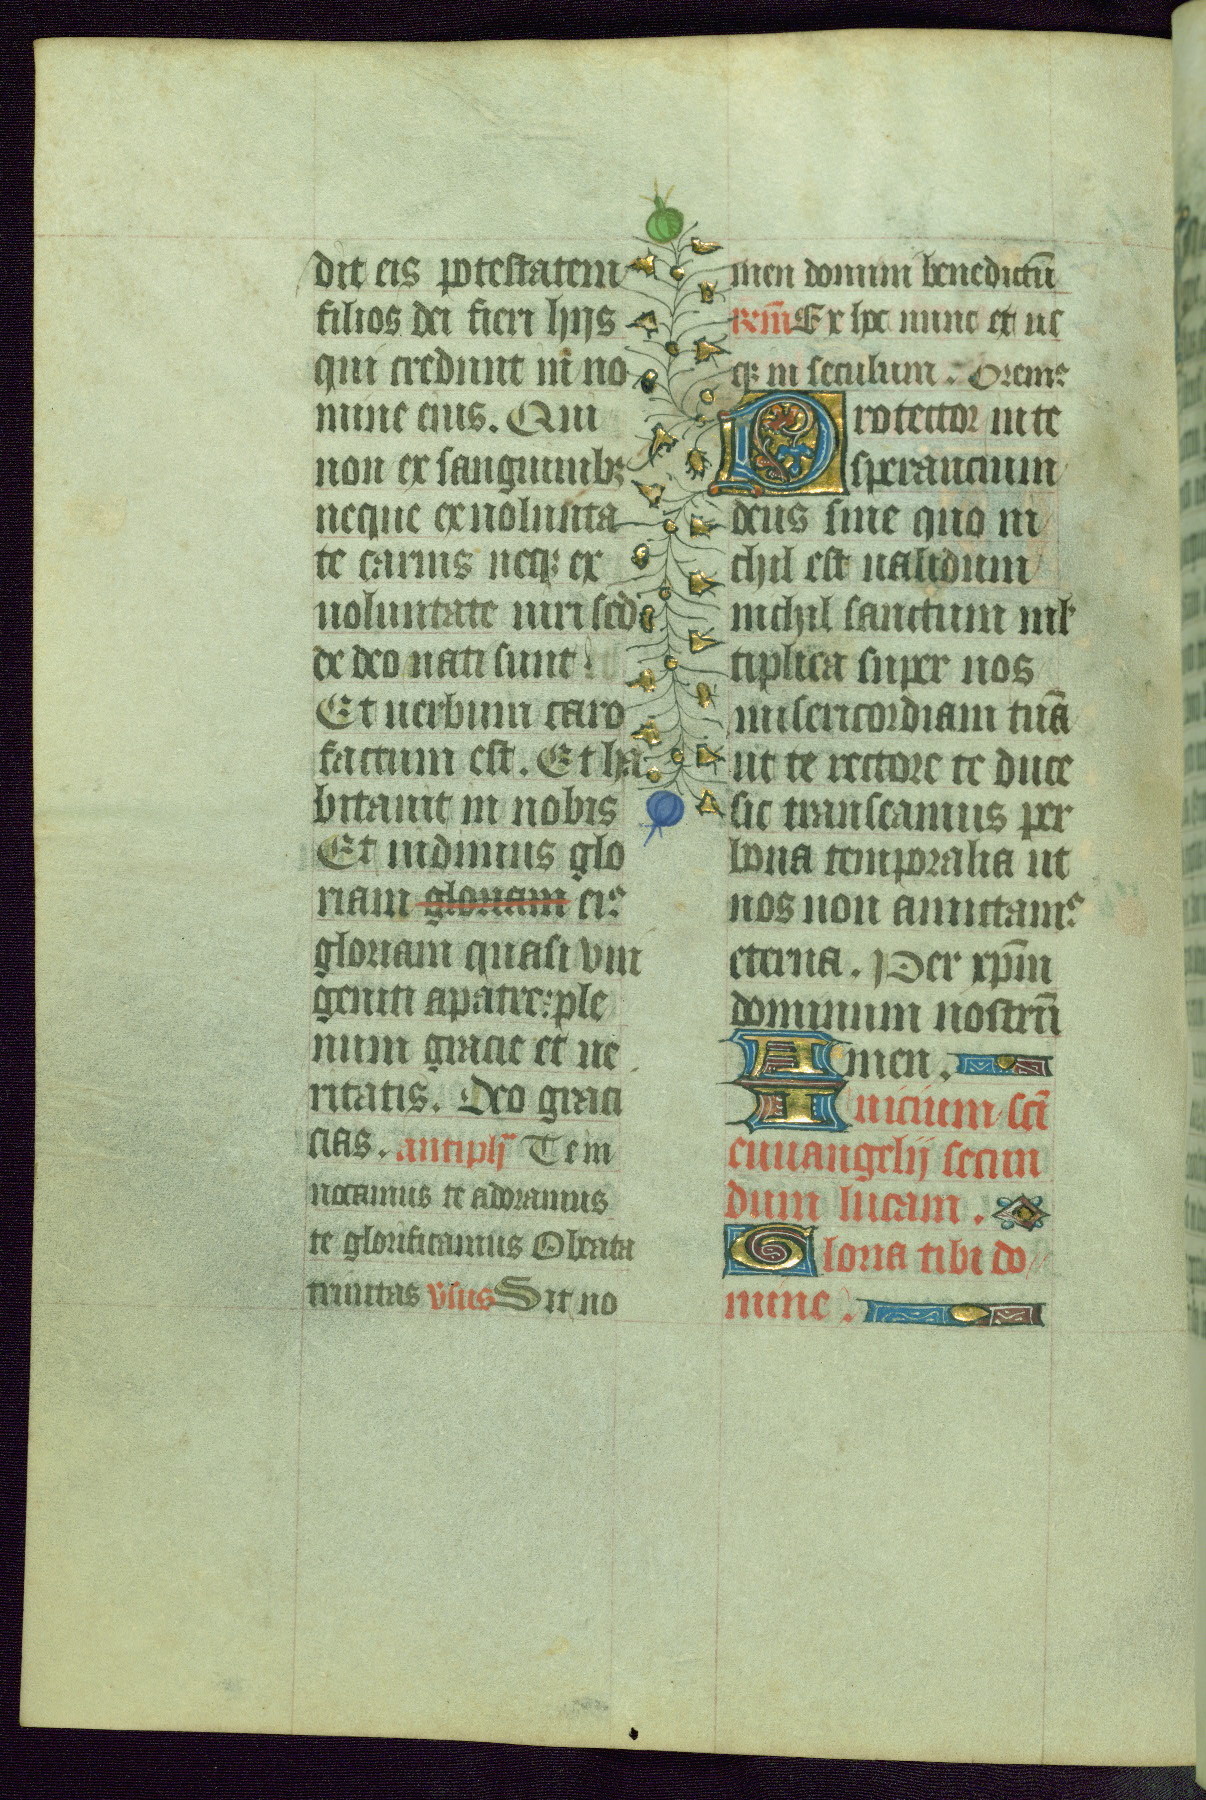 dit eis potestatem
filios dei fieri hijs
qui credunt in no
mine eius. Qui
non ex sanguinibꝫ
neque ex uolunta
te carnis neqꝫ ex
uoluntate uiri sed
de deo nati sunt
Et uerbum caro
factum est. Et ha
bitauit in nobis
Et uidimus glo
riam gloriam eiꝰ
gloriam quasi vni
geniti a patre: ple
num gracie et ue
ritatis. Deo graci
cias. antiph̄ Te in
uocamus te adoramus
te glorificamus O beata
trinitas v̄sus Sit no
men domini benedictū
Rm̄ Ex hoc nunc et us
qꝫ in seculum. Oremꝰ
Protector in te
sperancium
deus sine quo ni
chil est ualidum
nichil sanctum mul
tiplica super nos
misericordiam tuā
ut te rectore te duce
sic transeamus per
bona temporalia ut
nos non amittamꝰ
eterna. Per xp̄m
dominum nostrū
Amen.
Inicium sc̄i
euuangelij secun
dum lucam.
Gloria tibi do
mine.